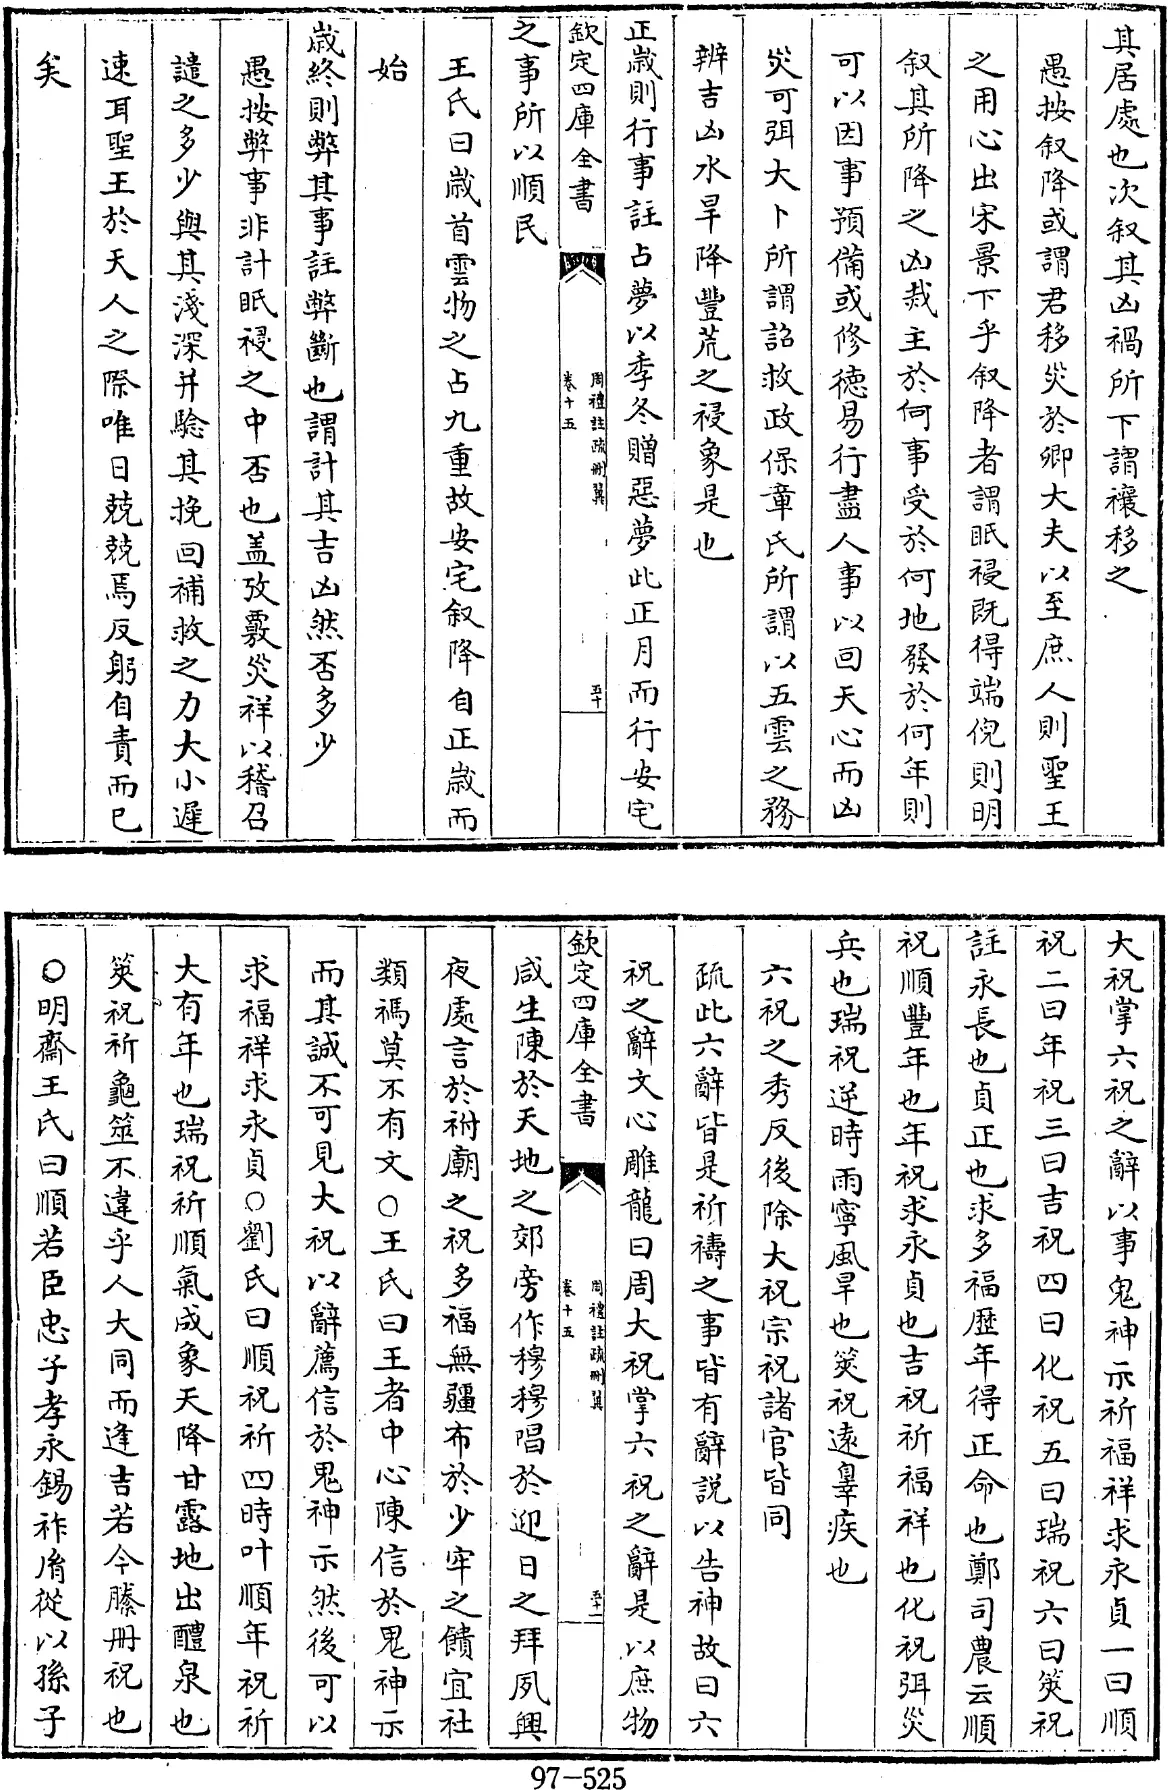 其居處也次叙其凶禍所下謂禳移之
愚按叙降或謂君移災於卿大夫以至庶人則聖王
之用心出宋景下乎叙降者謂眡祲既得端倪則明
叙其所降之凶烖主於何事受於何地發於何年則
可以因事預備或修徳易行盡人事以回天心而凶
災可弭大卜所謂詔救政保章氏所謂以五雲之務
辨吉凶水旱降豐荒之祲象是也
正歳則行事註占夢以季冬贈惡夢此正月而行安宅
欽定四庫全書
周禮註疏刪翼
卷十五
五十
之事所以順民
王氏曰歳首雲物之占九重故安宅叙降自正歳而
始
歳終則弊其事註弊斷也謂計其吉凶然否多少
愚按弊事非計眡祲之中否也盖攷覈災祥以稽召
譴之多少與其淺深并驗其挽回補救之力大小遲
速耳聖王於天人之際唯日兢兢焉反躬自責而已
矣
大祝掌六祝之辭以事鬼神示祈福祥求永貞一曰順
祝二曰年祝三曰吉祝四曰化祝五曰瑞祝六曰筴祝
註永長也貞正也求多福歷年得正命也鄭司農云順
祝順豐年也年祝求永貞也吉祝祈福祥也化祝弭災
兵也瑞祝逆時雨寧風旱也筴祝遠辠疾也
六祝之秀反後除大祝宗祝諸官皆同
疏此六辭皆是祈禱之事皆有辭説以告神故曰六
祝之辭文心雕龍曰周大祝掌六祝之辭是以庶物
欽定四庫全書
周禮註疏刪翼
卷十五
五十一
咸生陳於天地之郊旁作穆穆唱於迎日之拜夙興
夜處言於祔廟之祝多福無疆布於少牢之饋宜社
類禡莫不有文○王氏曰王者中心陳信於鬼神示
而其誠不可見大祝以辭薦信於鬼神示然後可以
求福祥求永貞○劉氏曰順祝祈四時叶順年祝祈
大有年也瑞祝祈順氣成象天降甘露地出醴泉也
筴祝祈龜筮不違乎人大同而逢吉若今縢冊祝也
○明齋王氏曰順若臣忠子孝永錫祚胤從以孫子
97-525